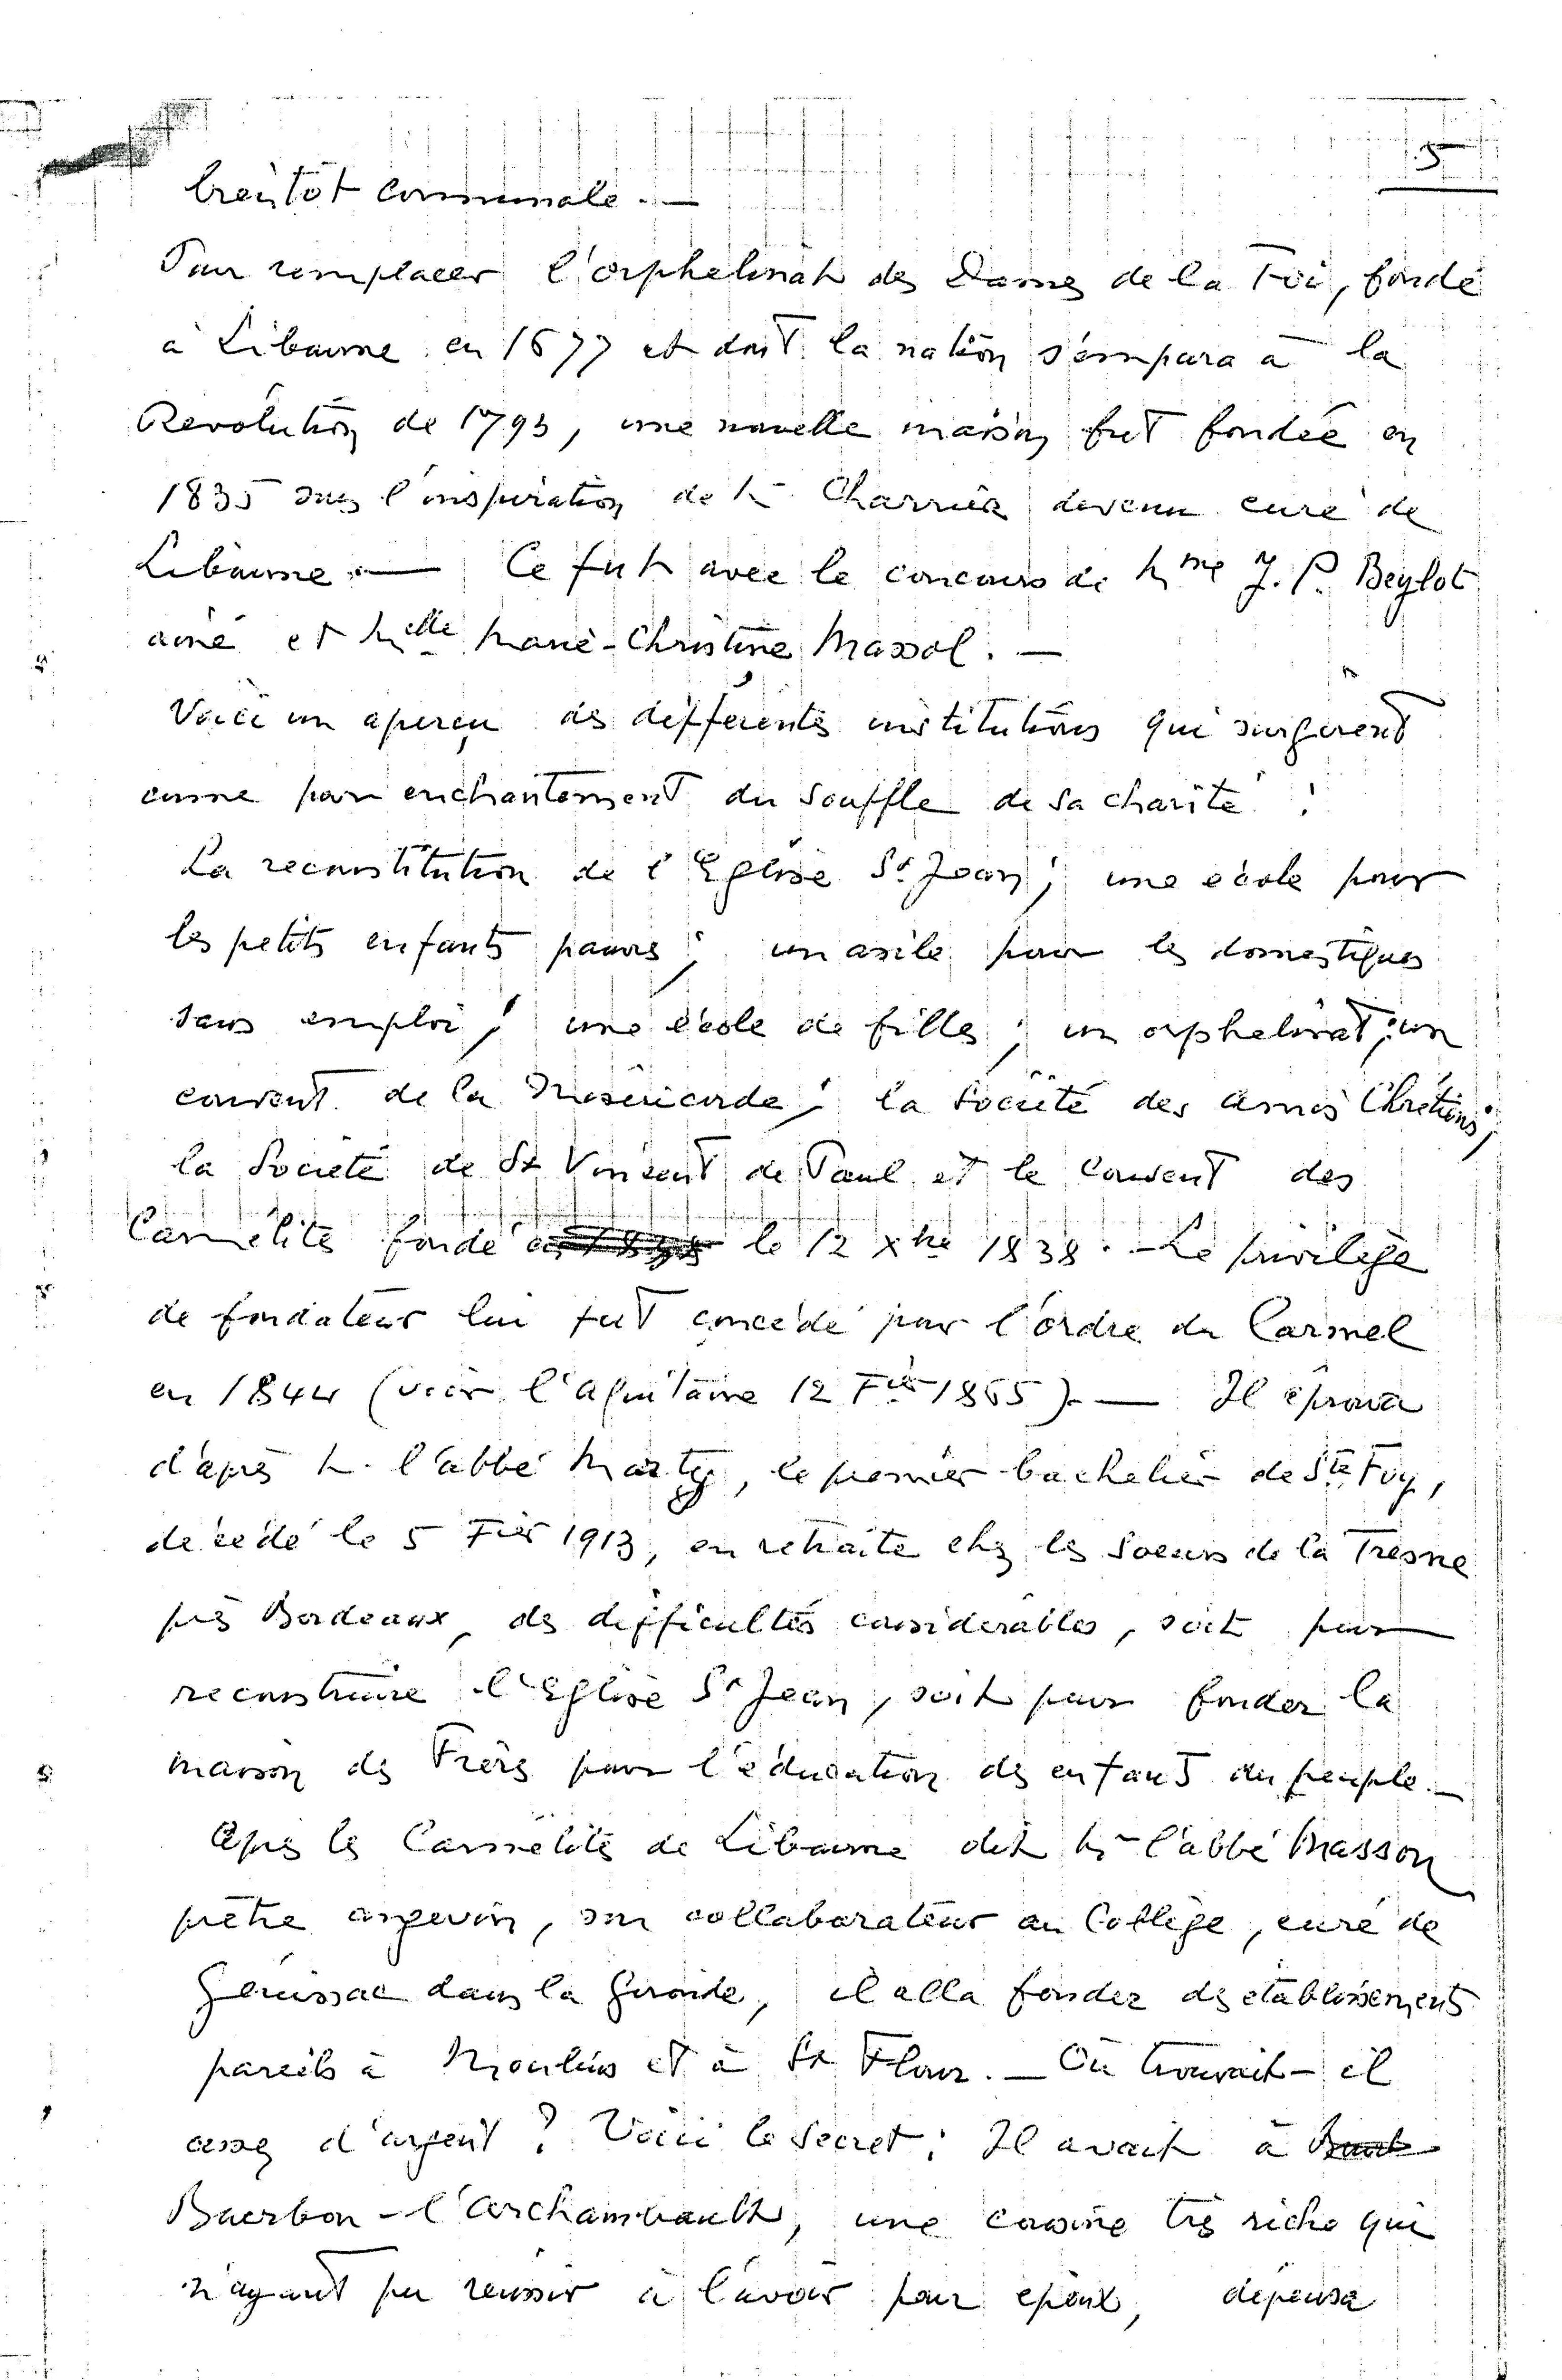 5
bientôt communale. —
Pour remplacer l'orphelinat des Dames de la Foi, fondé
à Libourne en 1677 et dont la nation s'empara à la
Révolution de 1793, une nouvelle maison fut fondée en
1835 sous l'inspiration de M. Charrier devenu curé de
Libourne. — Ce fut avec le concours de Mme J. P. Beylot
ainé et Melle Marie-Christine Massol. —
Voici un aperçu des différentes institutions qui surgirent
comme par enchantement du souffle de sa charité :
La reconstitution de l'Eglise St Jean ; une école pour
les petits enfants pauvres ; un asile pour les domestiques
sans emploi ; une école de filles ; un orphelinat ; un
couvent de la Miséricorde ; la Société des Amis Chrétiens ;
la Société de St Vincent de Paul et le couvent des
Carmélites fondé le 12 Xbre 1838. — Le privilège
de fondateur lui fut concédé par l'ordre du Carmel
en 1844 (voir l'Aquitaine 12 Fier 1865). — Il éprouva
d'après M. l'abbé Marty, le premier bachelier de Ste Foy,
décédé le 5 Fier 1913, en retraite chez les Soeurs de la Tresne
près Bordeaux, des difficultés considérables, soit pour
reconstruire l'Eglise St Jean, soit pour fonder la
maison des Frères pour l'éducation des enfants du peuple. —
Après les Carmélites de Libourne dit Mr l'abbé Masson
prêtre angevin, son collaborateur au Collège, curé de
Génissac dans la Gironde, il alla fonder des établissements
pareils à Moulins et à St Flour. — Où trouvait-il
assez d'argent ? Voici le secret : Il avait à
Bourbon-l'Archambault, une cousine très riche qui
n'ayant pu réussir à l'avoir pour époux, dépensa